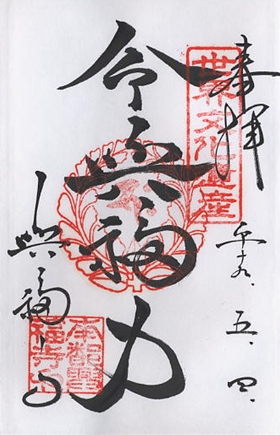 奉拝
世界文化遺産
平十九、五、四、
令興福力
興福寺
南都興
福寺印